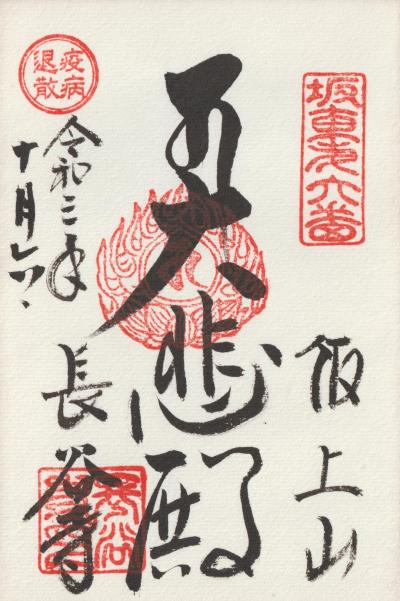 坂東第六番
飯上山
五大悲殿
疫病
退散
令和三年
十月六日
長谷寺